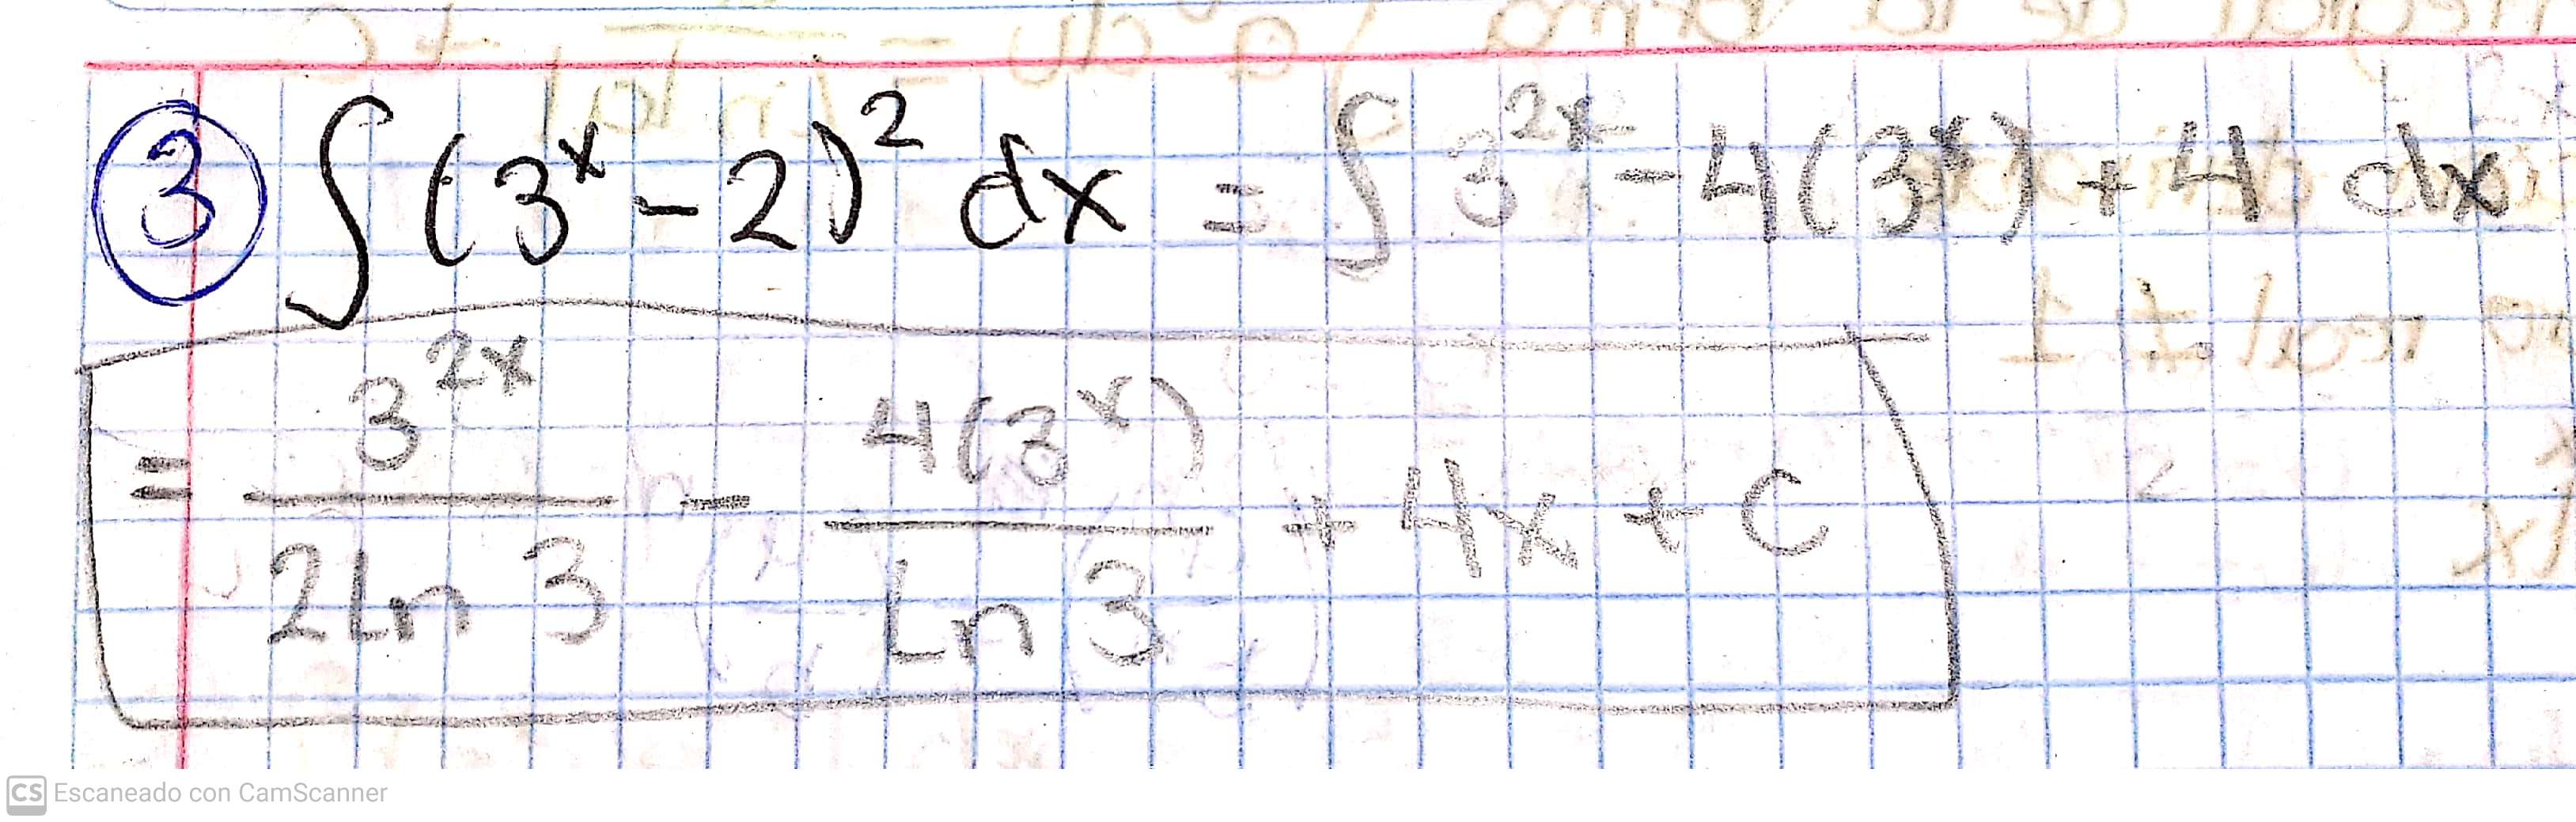 ③ ∫(3^x - 2)^2 dx = ∫ 3^{2x} - 4(3^x) + 4 dx
= \frac{3^{2x}}{2Ln 3} - \frac{4(3^x)}{Ln 3} + 4x + C
CS Escaneado con CamScanner